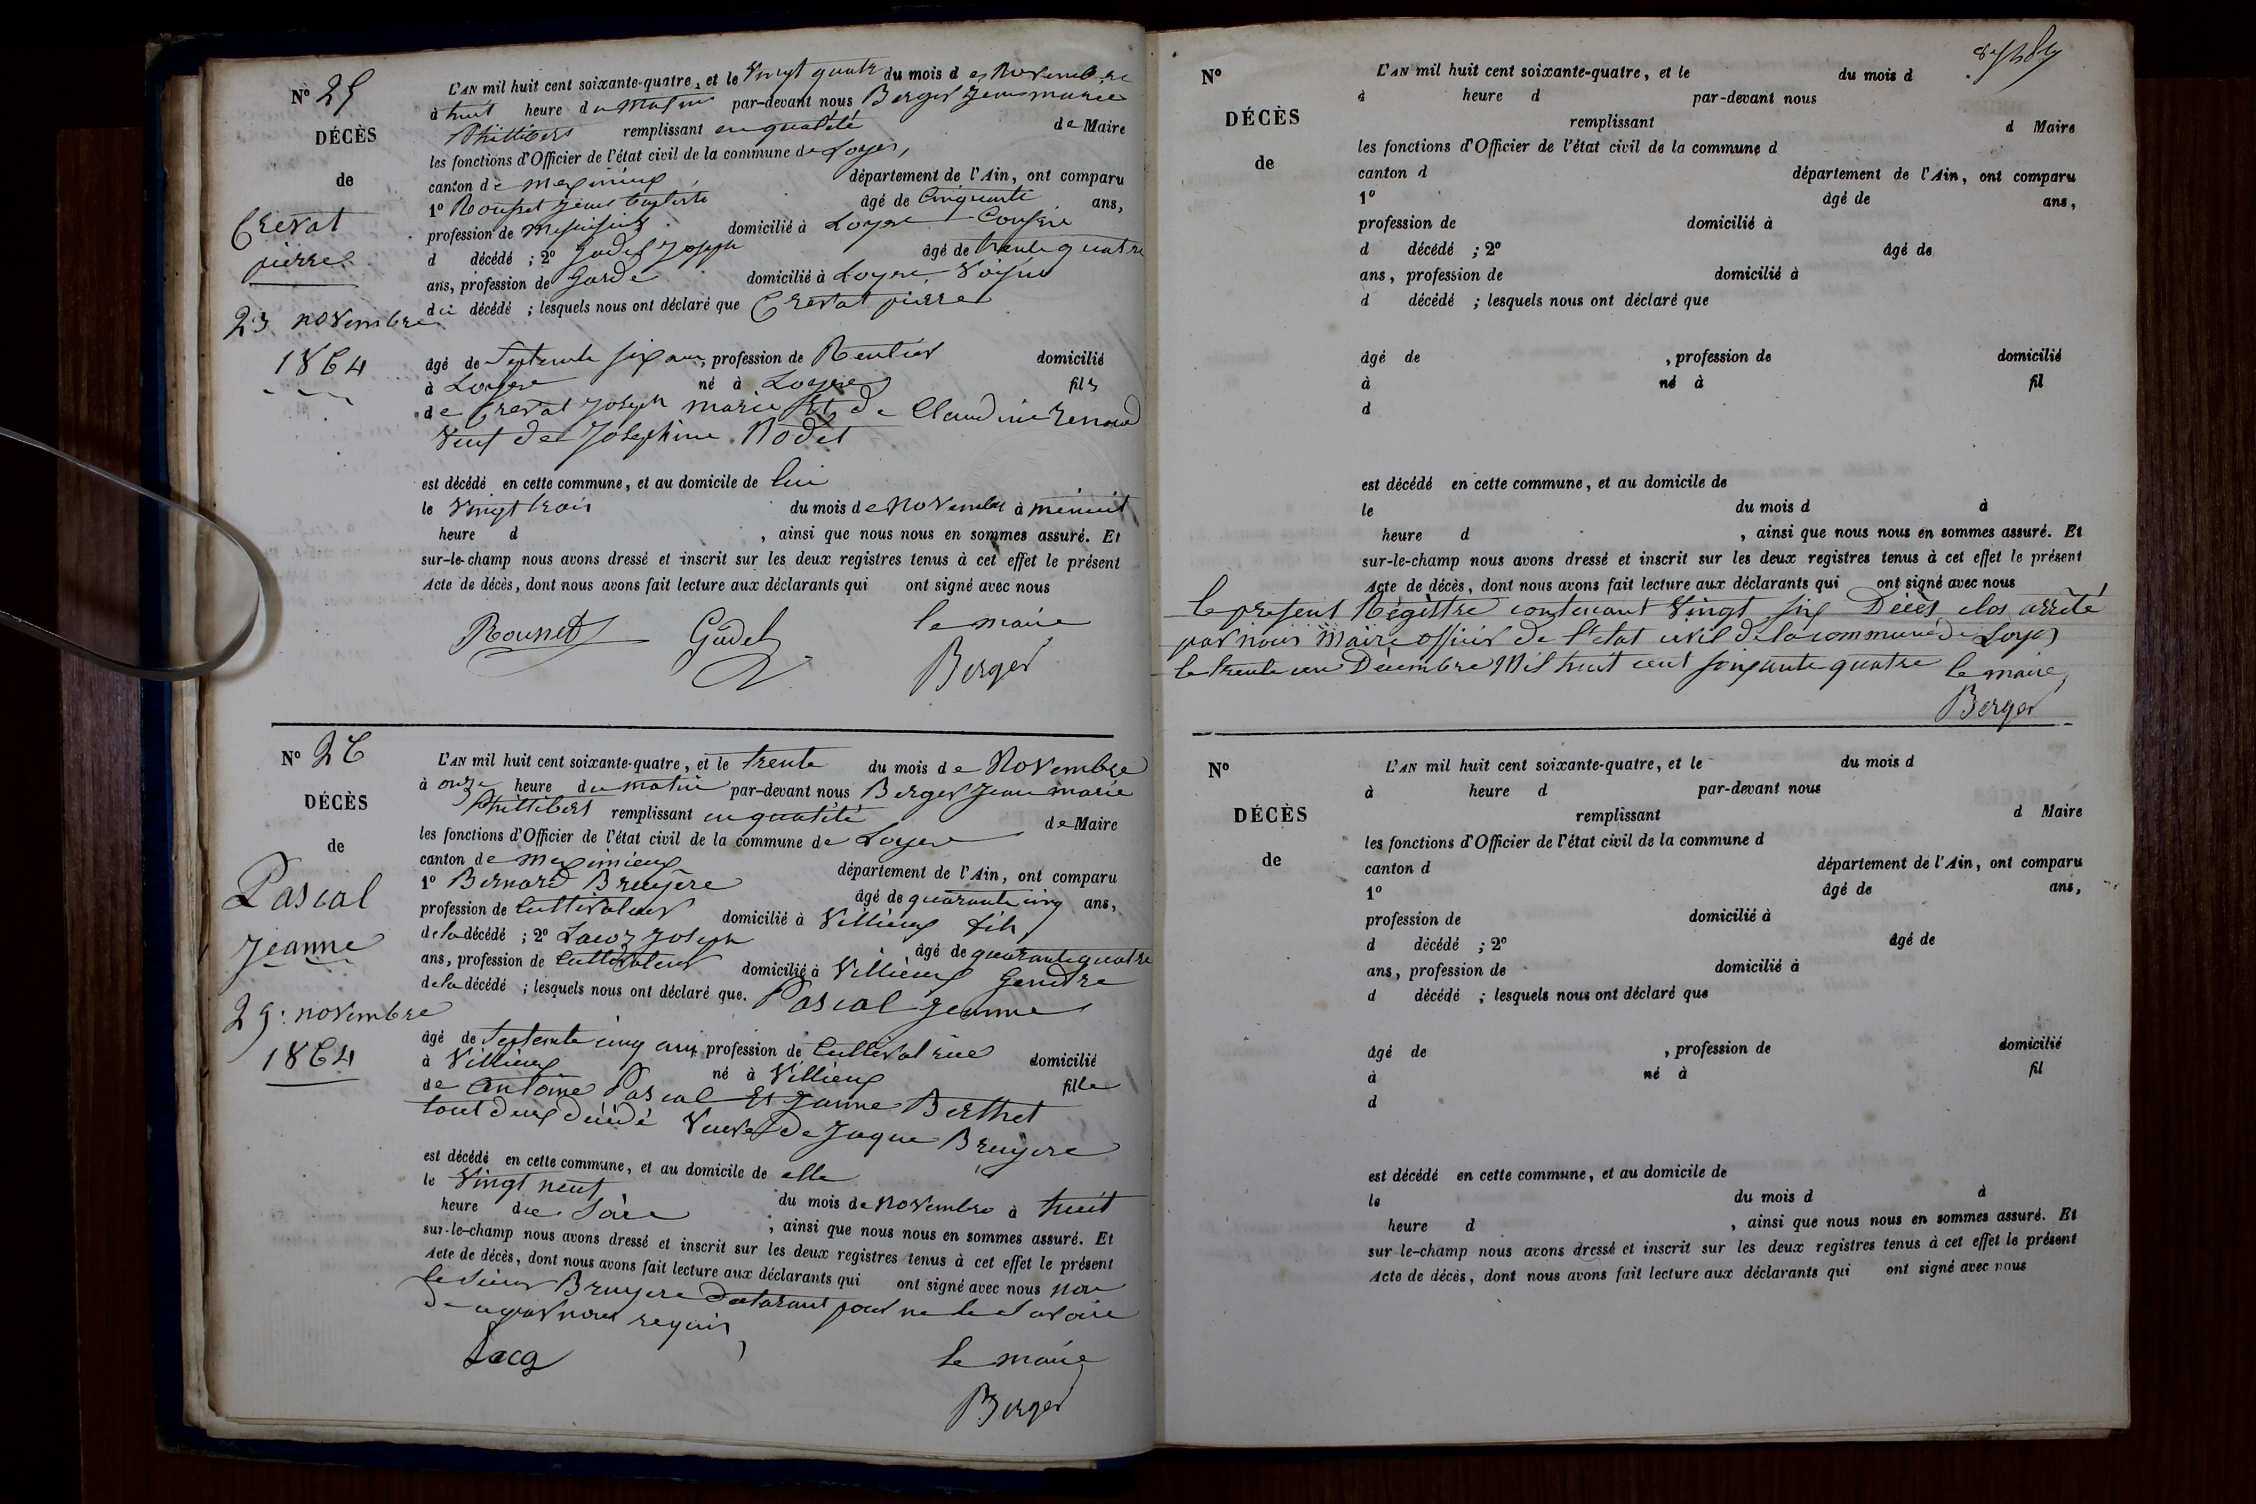 N° 25
DÉCÈS
de
Crevat
pierre
23 novembre
1864
L'AN mil huit cent soixante-quatre, et le Vingt quatre du mois de Novembre
à huit heure du Matin par-devant nous Berger Jean marie
Phillibert remplissant en qualité de Maire
les fonctions d'Officier de l'état civil de la commune de Loyes,
canton de meximieux département de l'Ain, ont comparu
1° Rousset Jean baptiste âgé de Cinquante ans,
profession de domicilié à Loyes
d décédé ; 2° Godet Joseph âgé de trente quatre
ans, profession de Garde domicilié à Loyes Voisin
du décédé ; lesquels nous ont déclaré que Crevat pierre
âgé de Septente six ans, profession de Rentier domicilié
à Loyes né à Loyes fils
de Crevat Joseph marie Et de Claudine Renaud
Veuf de Josephine Rodet
est décédé en cette commune, et au domicile de lui
le Vingt trois du mois de Novembre à minuit
heure d , ainsi que nous nous en sommes assuré. Et
sur-le-champ nous avons dressé et inscrit sur les deux registres tenus à cet effet le présent
Acte de décès, dont nous avons fait lecture aux déclarants qui ont signé avec nous
Rousset Godet le maire
Berger
N° 26
DÉCÈS
de
Pascal
Jeanne
29: novembre
1864
L'AN mil huit cent soixante-quatre, et le trente du mois de Novembre
à onze heure du matin par-devant nous Berger Jean marie
Phillibert remplissant en qualité de Maire
les fonctions d'Officier de l'état civil de la commune de Loyes
canton de meximieux département de l'Ain, ont comparu
1° Bernard Bruyère âgé de quarante cinq ans,
profession de Cultivateur domicilié à Villieux fils
de la décédé ; 2° Lacoz Joseph âgé de quarante quatre
ans, profession de Cultivateur domicilié à Villieux Gendre
de la décédé ; lesquels nous ont déclaré que Pascal Jeanne
âgé de Septente cinq ans, profession de Cultivatrice domicilié
à Villieux né à Villieux fille
de Antoine Pascal Et Jeanne Berthet
tout deux décédé Veuve de Jaque Bruyere
est décédé en cette commune, et au domicile de elle
le Vingt neuf du mois de Novembre à huit
heure du Soire , ainsi que nous nous en sommes assuré. Et
sur-le-champ nous avons dressé et inscrit sur les deux registres tenus à cet effet le présent
Acte de décès, dont nous avons fait lecture aux déclarants qui ont signé avec nous non
le Sieur Bruyere déclarant pour ne le Savoire
de ce par nous requis
Lacoz le maire
Berger
N°
DÉCÈS
de
L'AN mil huit cent soixante-quatre, et le du mois d
à heure d par-devant nous
remplissant d Maire
les fonctions d'Officier de l'état civil de la commune d
canton d département de l'Ain, ont comparu
1° âgé de ans,
profession de domicilié à
d décédé ; 2° âgé de
ans, profession de domicilié à
d décédé ; lesquels nous ont déclaré que
âgé de , profession de domicilié
à né à fil
d
est décédé en cette commune, et au domicile de
le du mois d à
heure d , ainsi que nous nous en sommes assuré. Et
sur-le-champ nous avons dressé et inscrit sur les deux registres tenus à cet effet le présent
Acte de décès, dont nous avons fait lecture aux déclarants qui ont signé avec nous
le present Régistre contenant Vingt six Décès clos arrêté
par nous Maire officier de l'etat civil de la commune de Loyes
le trente un Décembre Mil huit cent soixante quatre le maire
Berger
N°
DÉCÈS
de
L'AN mil huit cent soixante-quatre, et le du mois d
à heure d par-devant nous
remplissant d Maire
les fonctions d'Officier de l'état civil de la commune d
canton d département de l'Ain, ont comparu
1° âgé de ans,
profession de domicilié à
d décédé ; 2° âgé de
ans, profession de domicilié à
d décédé ; lesquels nous ont déclaré que
âgé de , profession de domicilié
à né à fil
d
est décédé en cette commune, et au domicile de
le du mois d à
heure d , ainsi que nous nous en sommes assuré. Et
sur-le-champ nous avons dressé et inscrit sur les deux registres tenus à cet effet le présent
Acte de décès, dont nous avons fait lecture aux déclarants qui ont signé avec nous